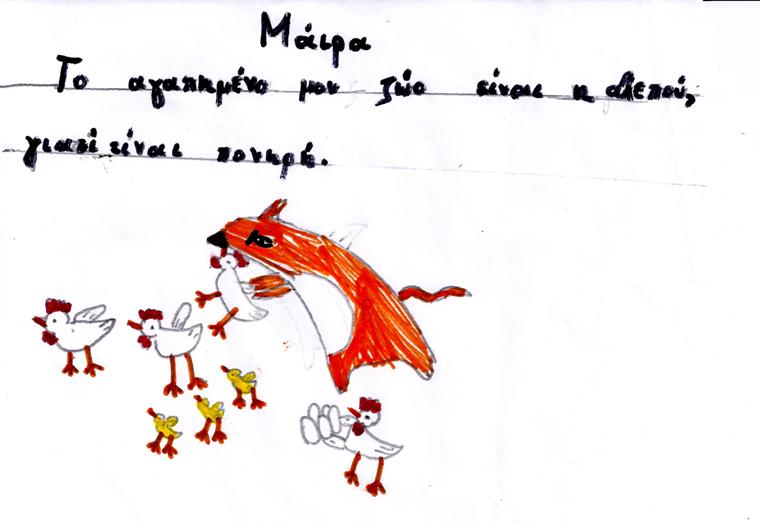 Μάιρα
Το αγαπημένο μου ζώο είναι η αλεπού,
γιατί είναι πονηρή.